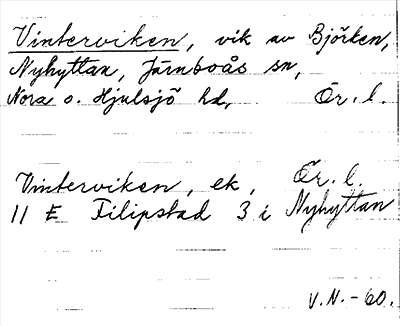 Vinterviken, vik av Björken,
Nyhyttan, Järnboås sn,
Nora o. Hjulsjö hd, Ör. l.
Vinterviken, ek, Ör. l.
11 E Filipstad 3 i Nyhyttan
V.N.-60.